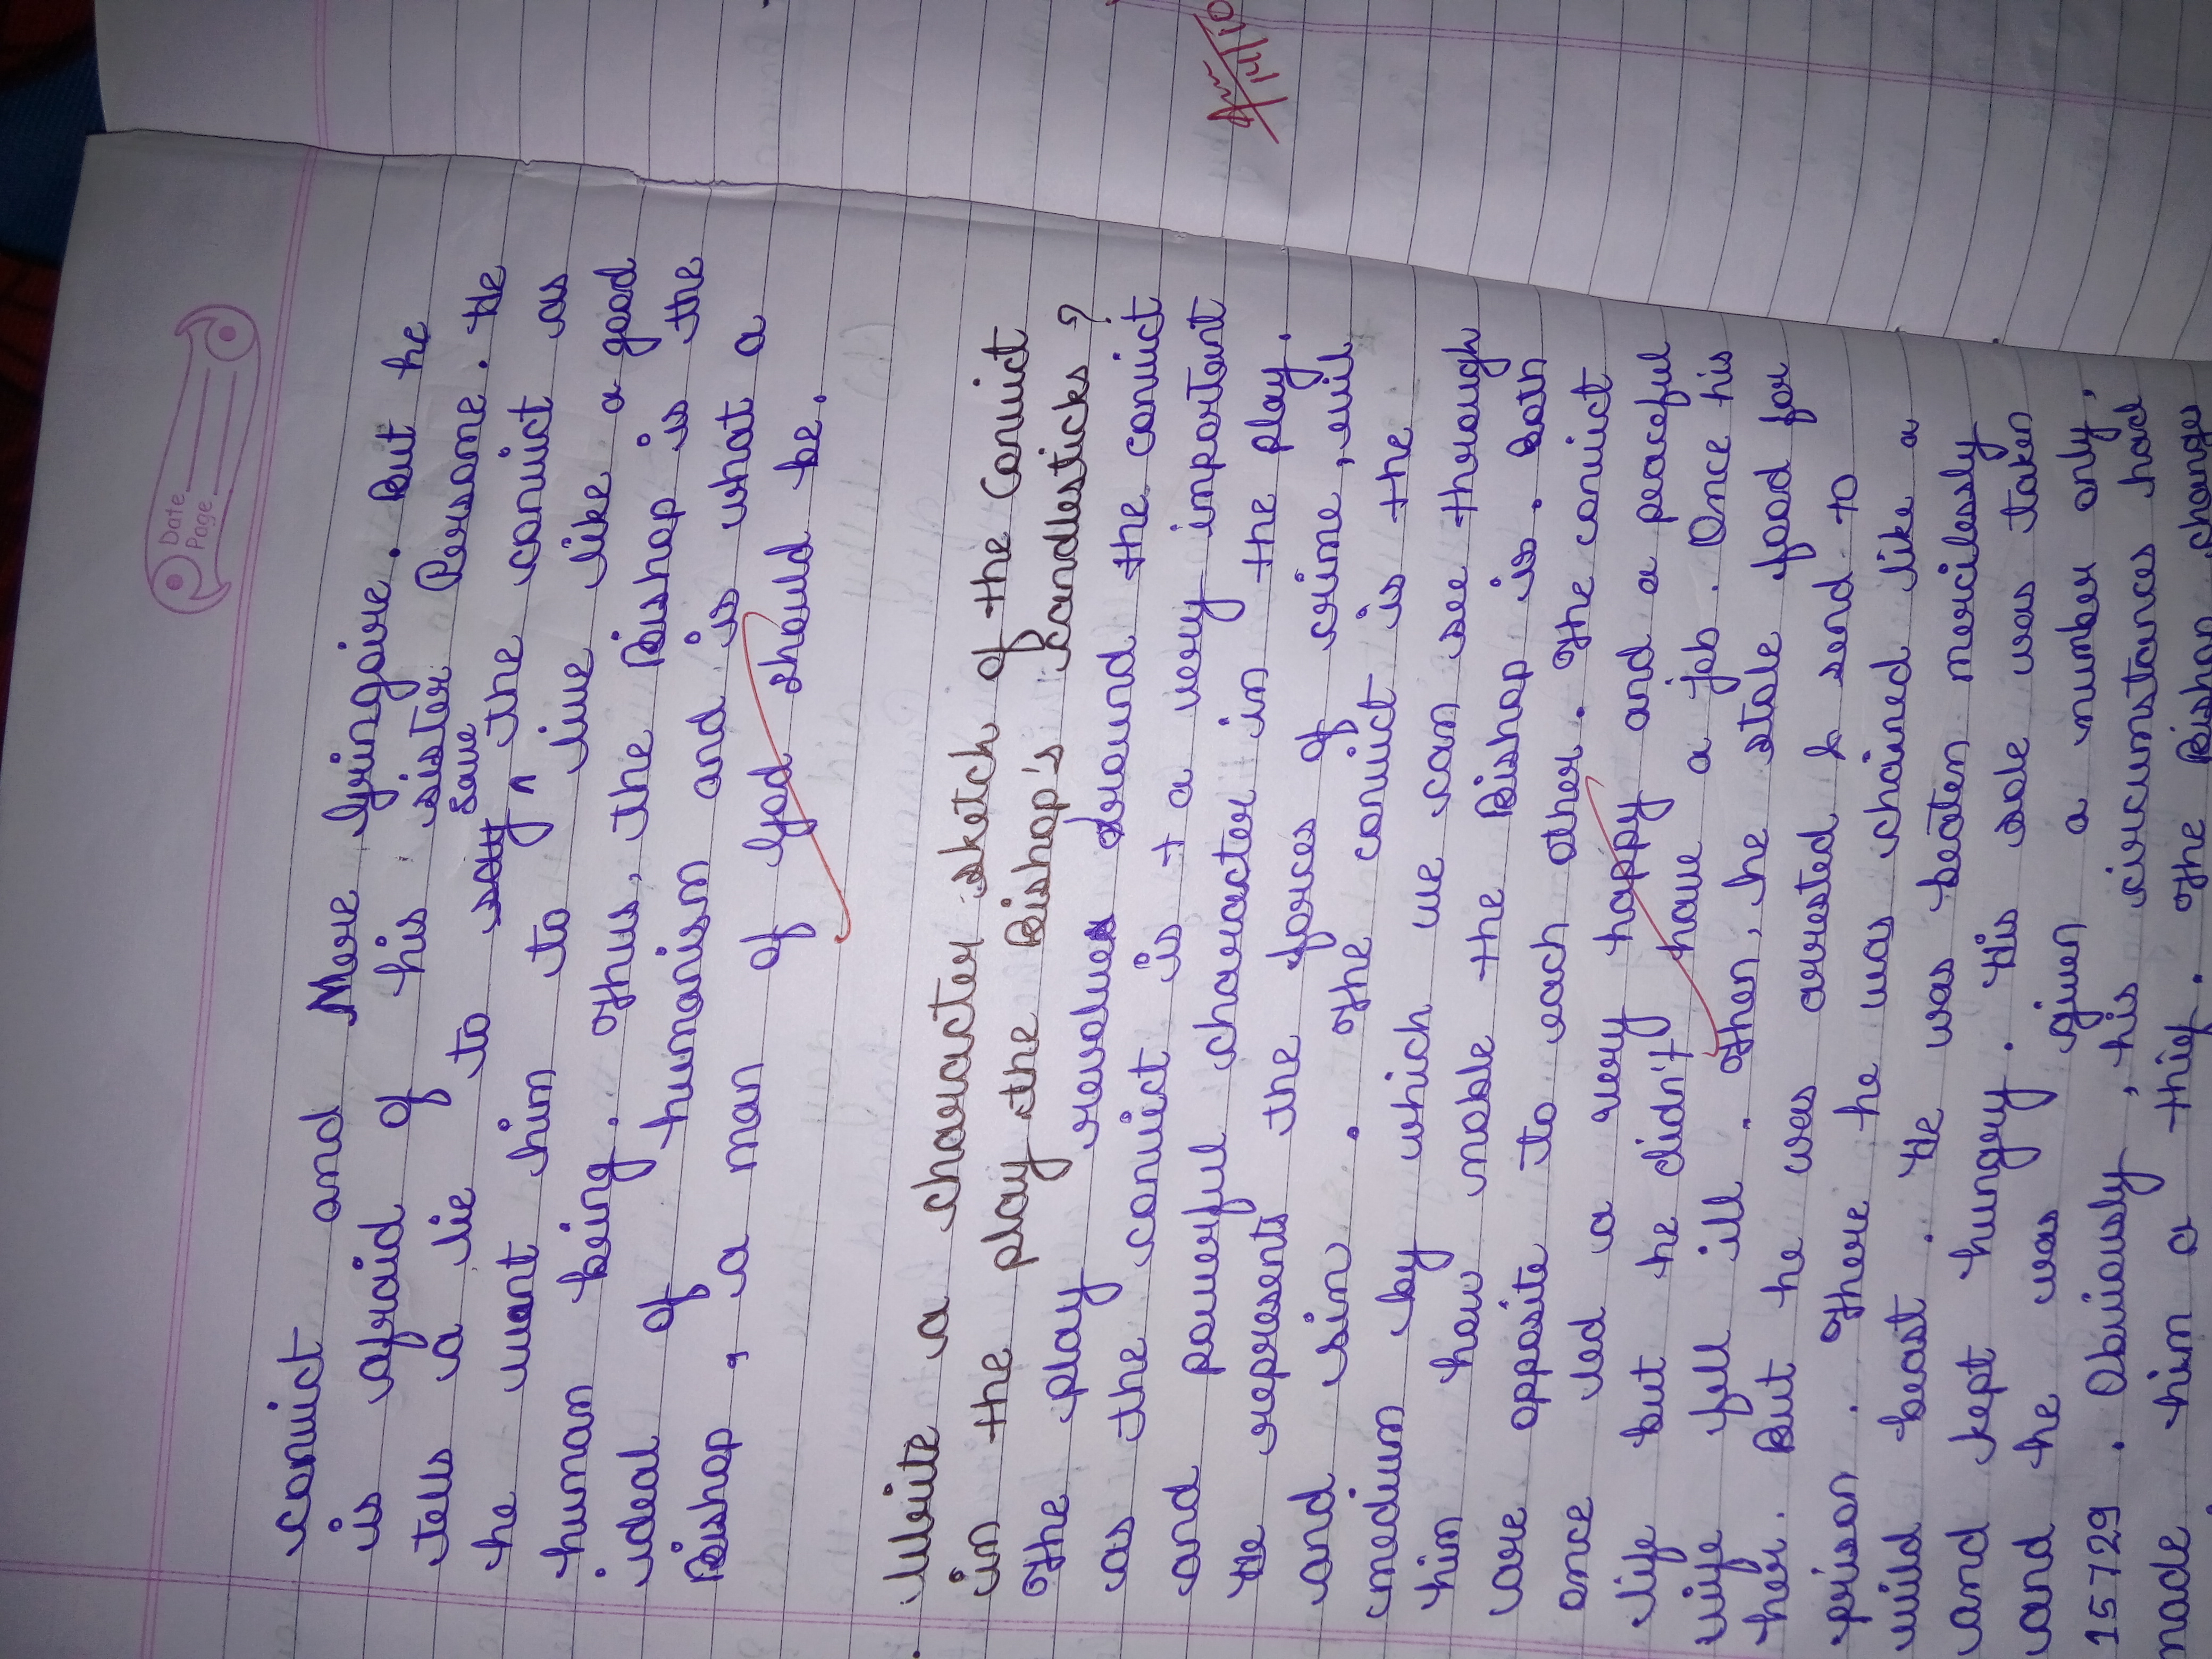 Date
Page
convict and More foringoive. But he
is afraid of his sister Persome. He
tells a lie to save the convict as
he want him to live like a good
human being. Thus, the Bishop is the
ideal of humanism and is what a
Bishop, a man of God should be.
Write a character sketch of the Convict
in the play the Bishop's Candlesticks?
The play revolves around the convict
as the convict is a very important
and powerful character in the play.
He represents the forces of crime, evil
and sin. The convict is the
medium by which we can see through
him how noble the Bishop is. Both
are opposite to each other. The convict
once led a very happy and a peaceful
life but he didn't have a job. Once his
wife fell ill. Then, he stole food for
her. But he was arrested & send to
prison. There he was chained like a
wild beast. He was beaten mericilessly
and kept hungry. His sole was taken
and he was given a number only,
15729. Obviously, his circumstances had
made him a thief. The Bishop change
14/10